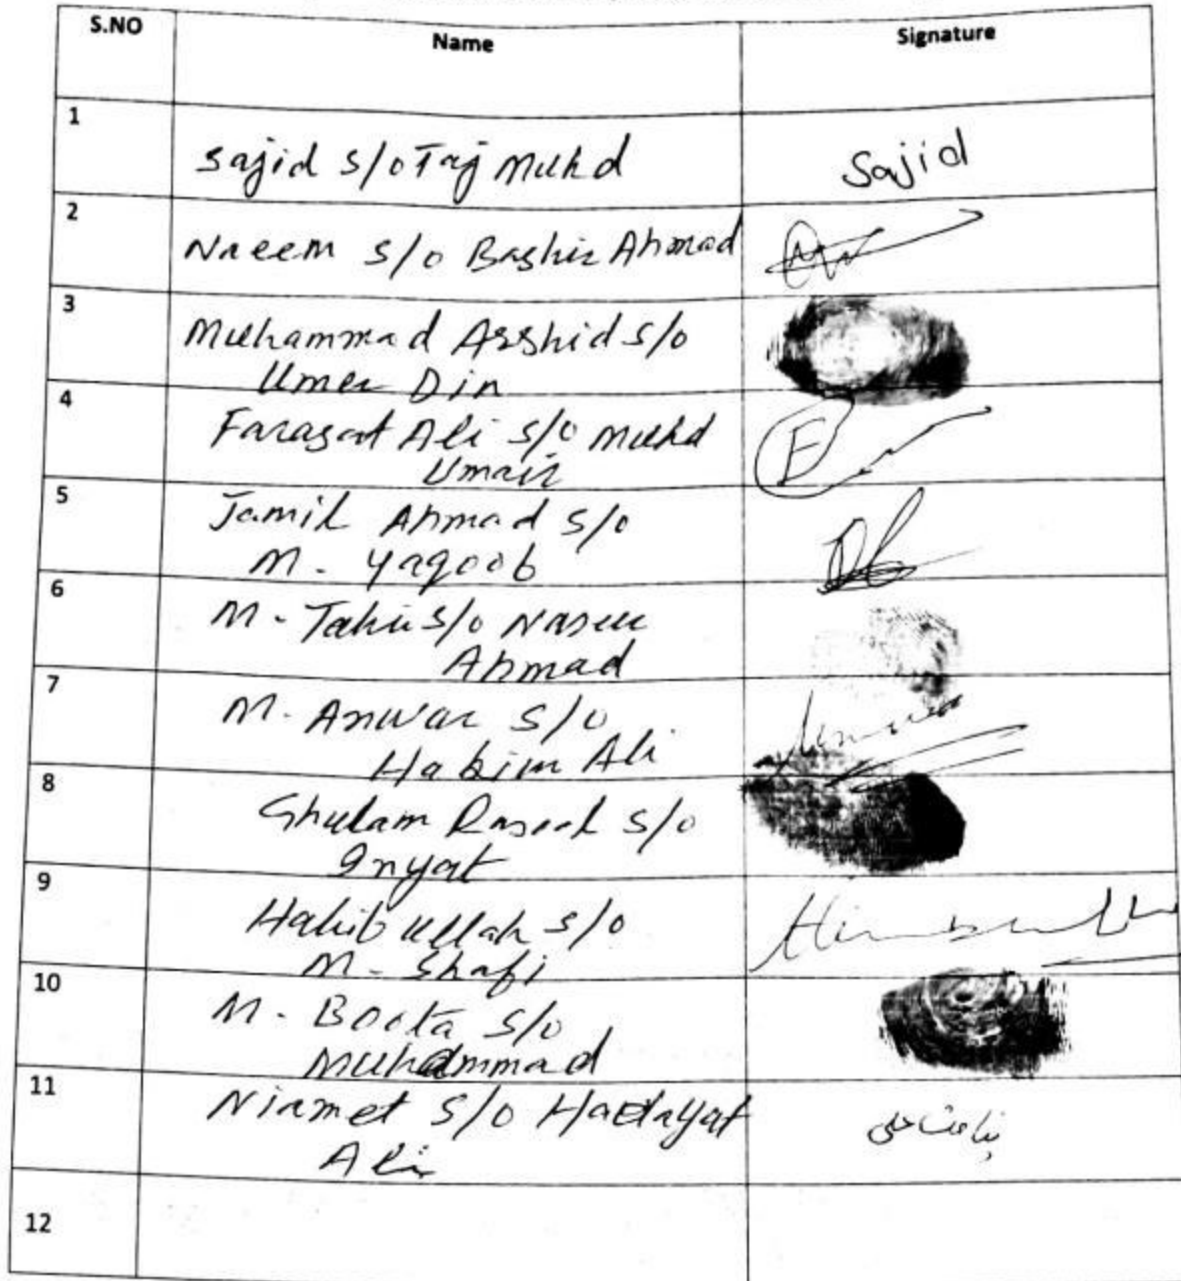 S.NO Name Signature
1
Sajid s/o Taj Muhd Sajid
2
Naeem s/o Bashir Ahmad
3
Muhammad Arshid s/o
Umer Din
4
Farasat Ali s/o Muhd
Umair
5
Jamil Ahmad s/o
M. Yaqoob
6
M. Tahir s/o Naseer
Ahmad
7
M. Anwar s/o
Hakim Ali
8
Ghulam Rasool s/o
Inyat
9
Habib ullah s/o
M. Shafi
10
M. Boota s/o
Muhammad
11
Niamet s/o Hadayat
Ali
12